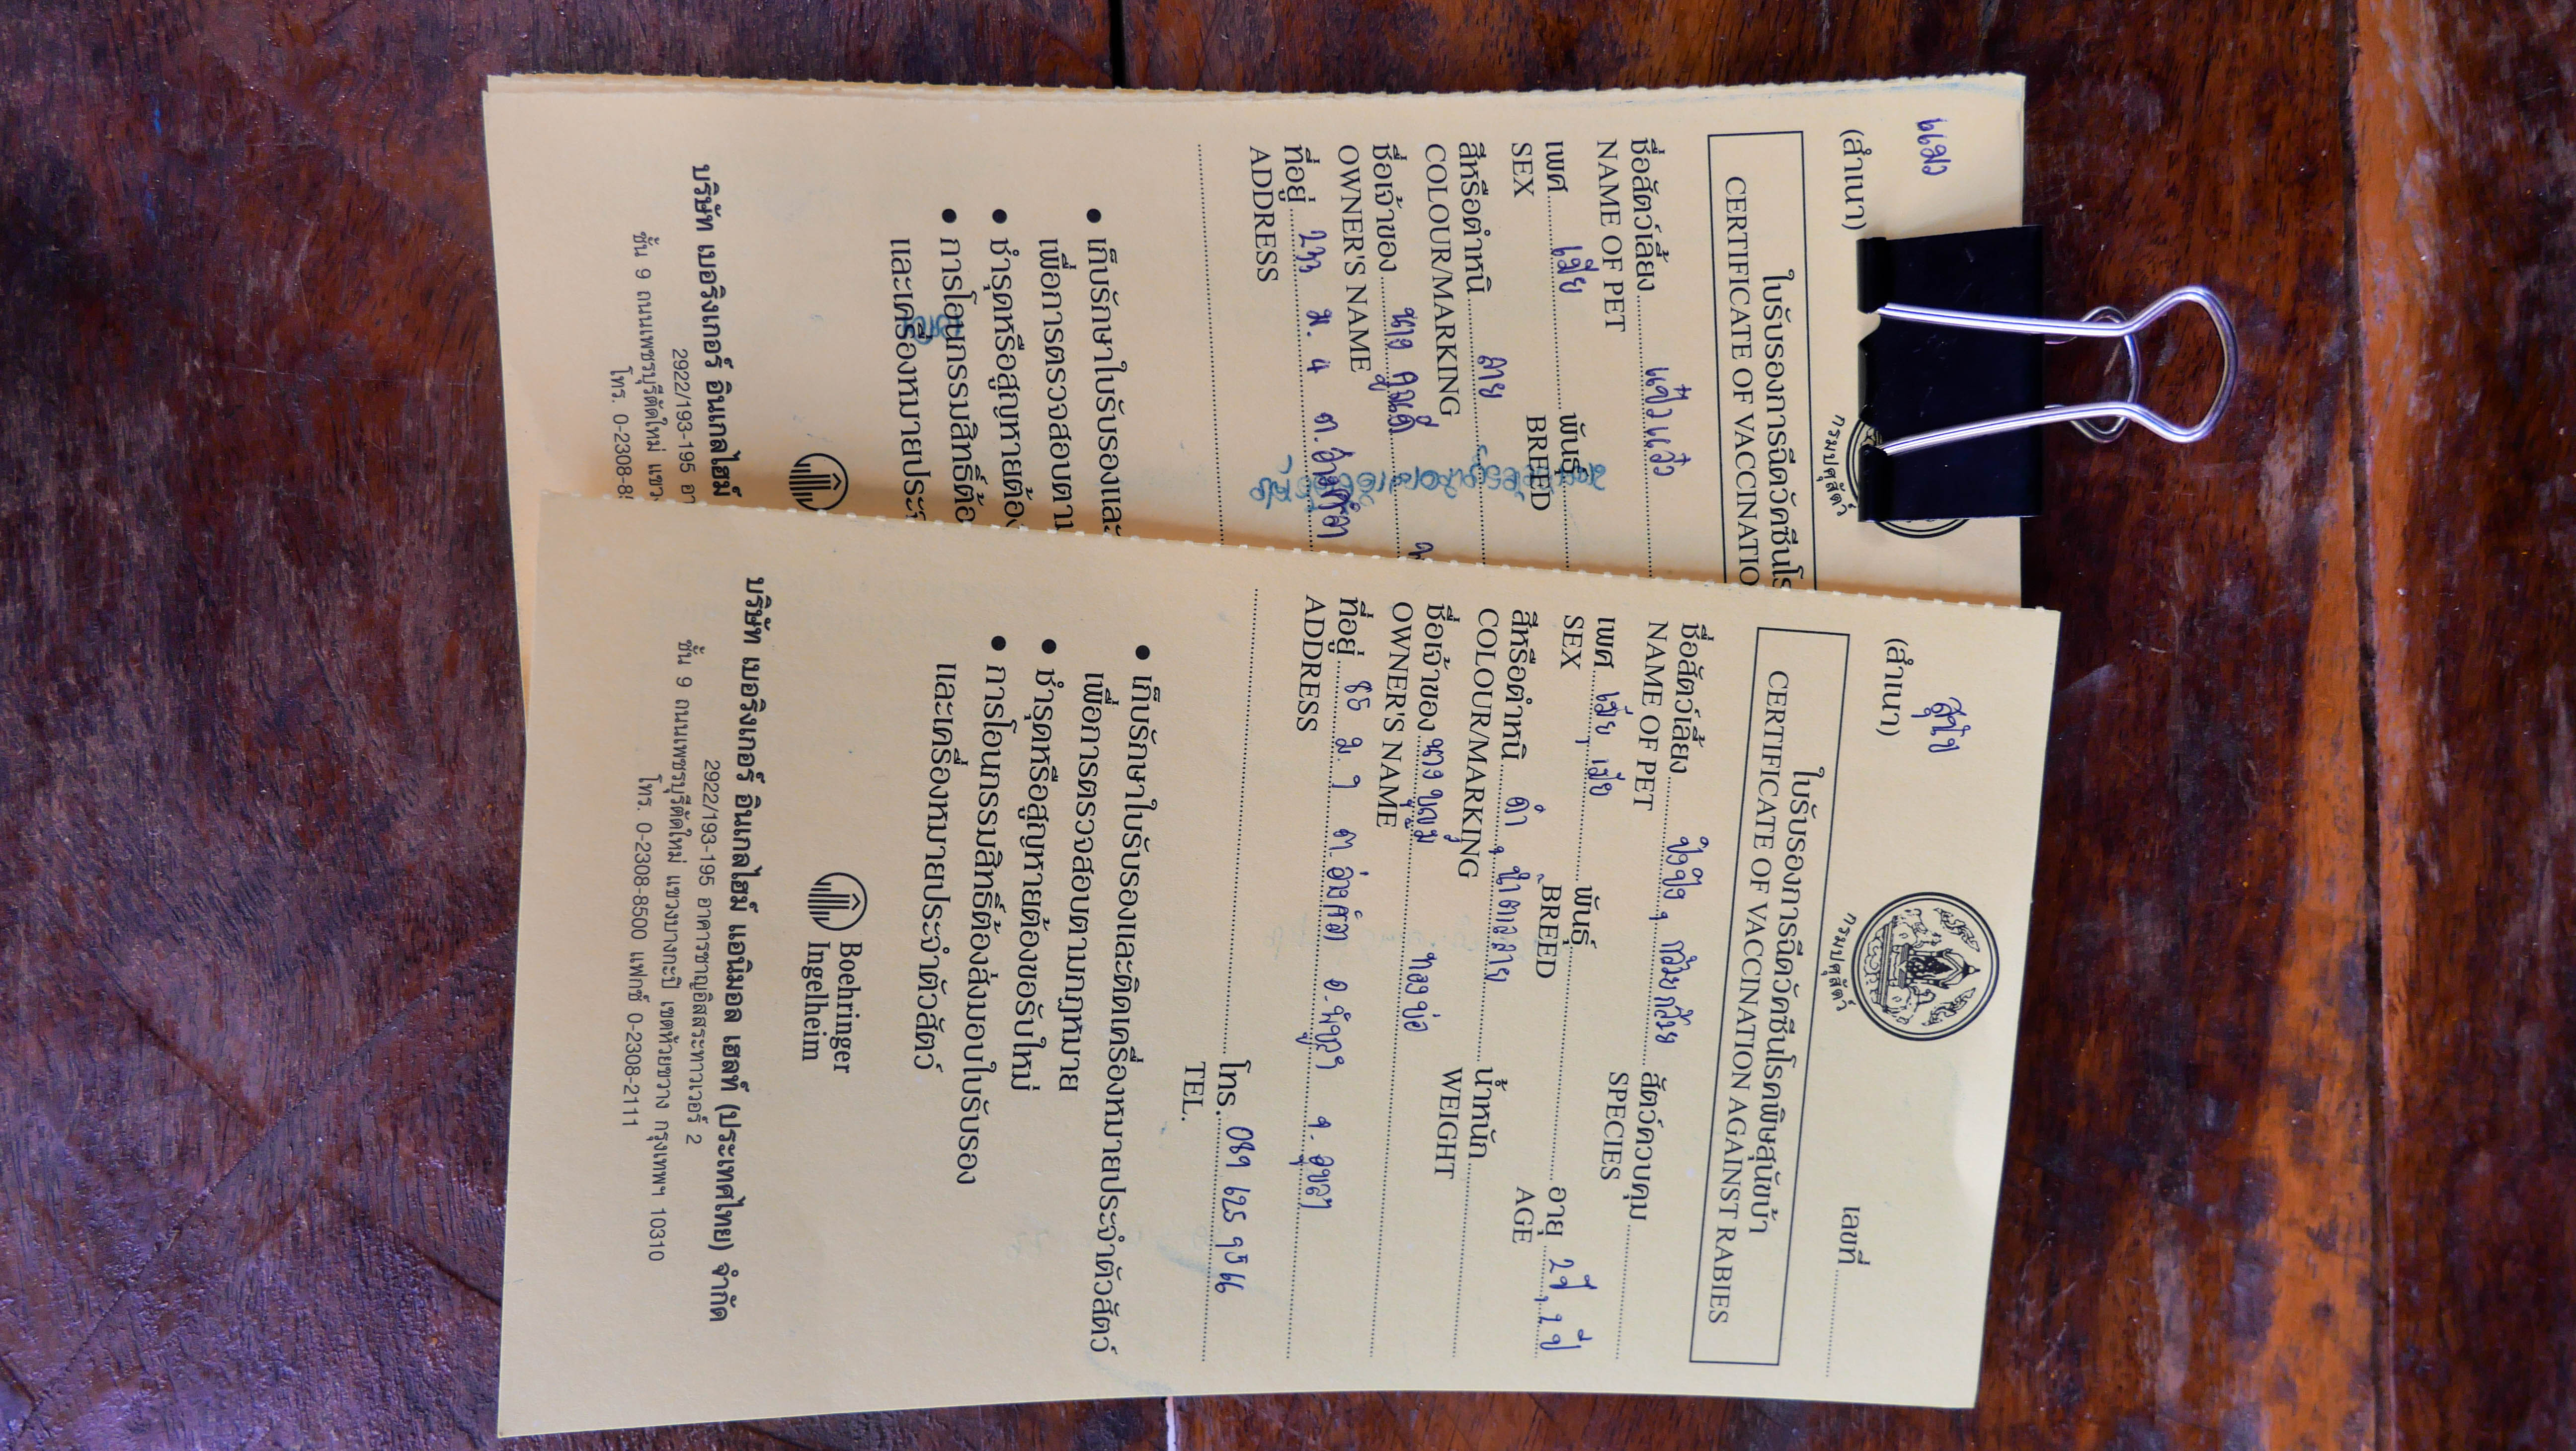 แมว
(สำเนา)
กรมปศุสัตว์
ใบรับรองการฉีดวัคซีนโร
CERTIFICATE OF VACCINATIO
ชื่อสัตว์เลี้ยง แซ๊วแซ๋ว
NAME OF PET
เพศ เมีย พันธุ์
SEX BREED
สีหรือตำหนิ ลาย
COLOUR/MARKING
ชื่อเจ้าของ นาง
OWNER'S NAME
ที่อยู่ 233 ม. 4 ต.อ่างศิลา
ADDRESS
เก็บรักษาใบรับรองและ
เพื่อการตรวจสอบตาม
ชำรุดหรือสูญหายต้อง
การโอนกรรมสิทธิ์ต้อ
และเครื่องหมายประจ
บริษัท เบอริงเกอร์ อินเกลไฮม์
2922/193-195 อา
ชั้น 9 ถนนเพชรบุรีตัดใหม่ แขว
โทร. 0-2308-85
สุนัข
(สำเนา)
เลขที่
กรมปศุสัตว์
ใบรับรองการฉีดวัคซีนโรคพิษสุนัขบ้า
CERTIFICATE OF VACCINATION AGAINST RABIES
ชื่อสัตว์เลี้ยง ปิงปิง , กล้วยกล้วย สัตว์ควบคุม
NAME OF PET SPECIES
เพศ เมีย, เมีย พันธุ์ อายุ 2ปี, 2ปี
SEX BREED AGE
สีหรือตำหนิ ดำ , น้ำตาลลาย น้ำหนัก
COLOUR/MARKING WEIGHT
ชื่อเจ้าของ นาง ทองบ่อ
OWNER'S NAME
ที่อยู่ 88 ม. 7 ต.อ่างศิลา อ.พิบูลฯ จ.อุบลฯ
ADDRESS
โทร. 089 625 9566
TEL.
เก็บรักษาใบรับรองและติดเครื่องหมายประจำตัวสัตว์
เพื่อการตรวจสอบตามกฎหมาย
ชำรุดหรือสูญหายต้องขอรับใหม่
การโอนกรรมสิทธิ์ต้องส่งมอบใบรับรอง
และเครื่องหมายประจำตัวสัตว์
Boehringer
Ingelheim
บริษัท เบอริงเกอร์ อินเกลไฮม์ แอนิมอล เฮลท์ (ประเทศไทย) จำกัด
2922/193-195 อาคารชาญอิสสระทาวเวอร์ 2
ชั้น 9 ถนนเพชรบุรีตัดใหม่ แขวงบางกะปิ เขตห้วยขวาง กรุงเทพฯ 10310
โทร. 0-2308-8500 แฟกซ์ 0-2308-2111